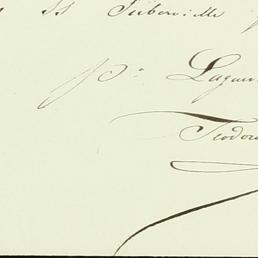 SS Tuberville
Pº Lagun
Teodor